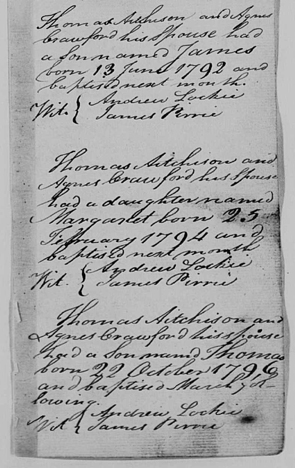 Thomas Aitchison and Agnes
Crawford his Spouse had
a son named James
born 13 June 1792 and
baptised next month.
Wit. { Andrew Lockie
James Pirrie
Thomas Aitcheson and
Agnes Crawford his Spouse
had a daughter named
Margaret born 25
February 1794 and
baptised next month
Wit. { Andrew Lockie
James Pirrie
Thomas Aitchison and
Agnes Crawford his spouse
had a son namd Thomas
born 22 October 1796
and baptised March fol-
lowing.
Wit { Andrew Lockie
James Pirrie